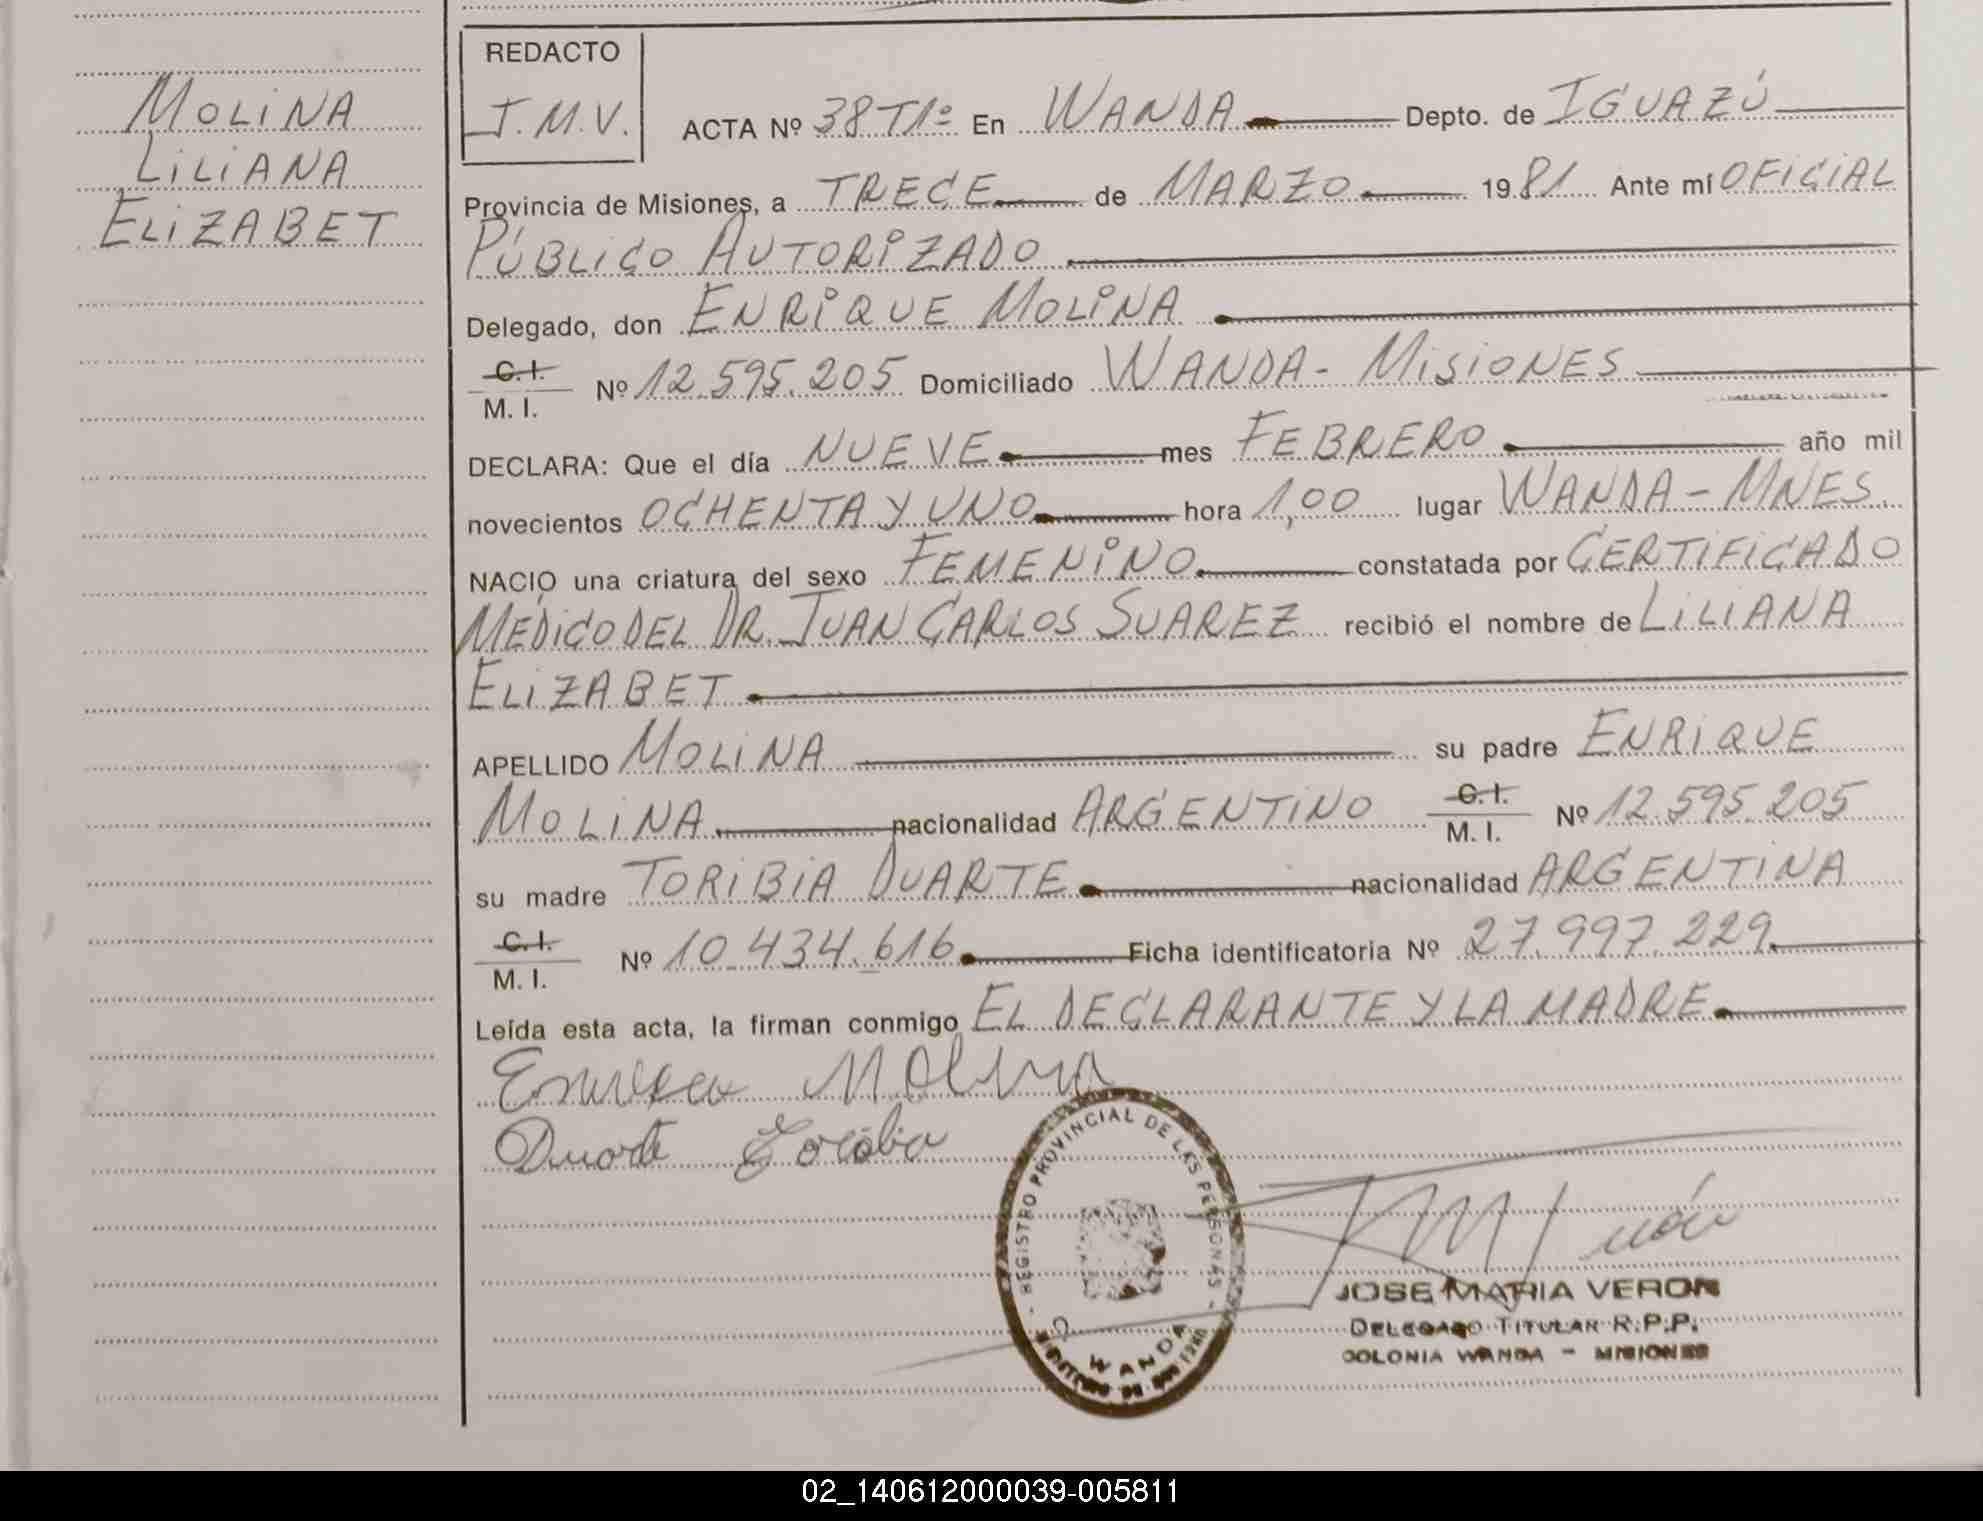 MOLINA
LILIANA
ELIZABET
REDACTO
J.M.V.
ACTA Nº 38 T1º En WANDA Depto. de IGUAZÚ
Provincia de Misiones, a TRECE de MARZO 1981 Ante mí OFICIAL
PÚBLICO AUTORIZADO
Delegado, don ENRIQUE MOLINA
C. I.
M. I. Nº 12.595.205 Domiciliado WANDA - MISIONES
DECLARA: Que el día NUEVE mes FEBRERO año mil
novecientos OCHENTA Y UNO hora 1,00 lugar WANDA - MNES.
NACIO una criatura del sexo FEMENINO constatada por CERTIFICADO
MÉDICO DEL DR. JUAN CARLOS SUAREZ recibió el nombre de LILIANA
ELIZABET
APELLIDO MOLINA su padre ENRIQUE
MOLINA nacionalidad ARGENTINO C. I. M. I. Nº 12.595.205
su madre TORIBIA DUARTE nacionalidad ARGENTINA
C. I.
M. I. Nº 10.434.616 Ficha identificatoria Nº 27.997.229
Leída esta acta, la firman conmigo EL DECLARANTE Y LA MADRE
Molina
Duarte Toribia
REGISTRO PROVINCIAL DE LAS PERSONAS
WANDA
JOSE MARIA VERON
DELEGADO TITULAR R.P.P.
COLONIA WANDA - MISIONES
02_140612000039-005811